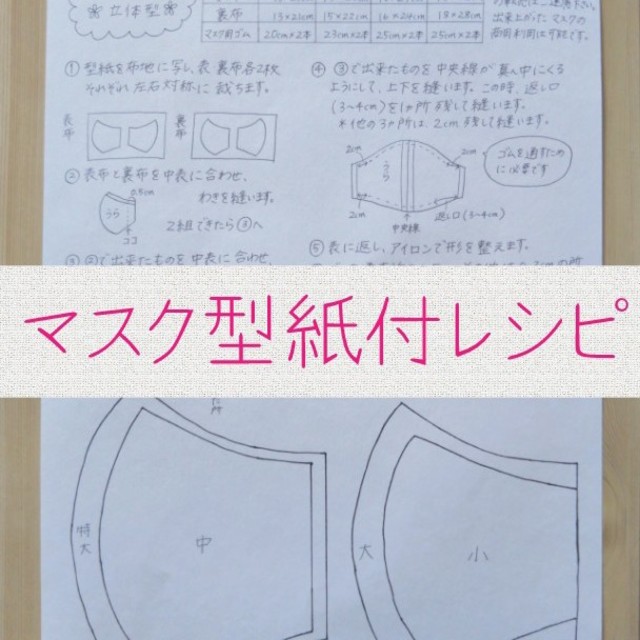 ❀立体型❀
裏布 13×21cm 15×22cm 16×24cm 18×28cm
マスク用ゴム 20cm×2本 23cm×2本 25cm×2本 25cm×2本
出来上がったマスクの
① 型紙を布地に写し、表裏布各2枚
それぞれ左右対称に裁ちます。
表布
裏布
② 表布と裏布を中表に合わせ、
わきを縫います。
うら
ココ
2組できたら③へ
③ ②で出来たものを中表に合わせ、
④ ③で出来たものを中央線が真ん中にくる
ようにして、上下を縫います。この時、返し口
(3~4cm)を1か所残して縫います。
*他の3ヶ所は2cm残して縫います。
2cm
2cm
うら
ゴムを通すため
に必要です
2cm
中央線
返し口(3~4cm)
⑤ 表に返し、アイロンで形を整えます。
マスク型紙付レシピ
特大
中
大
小